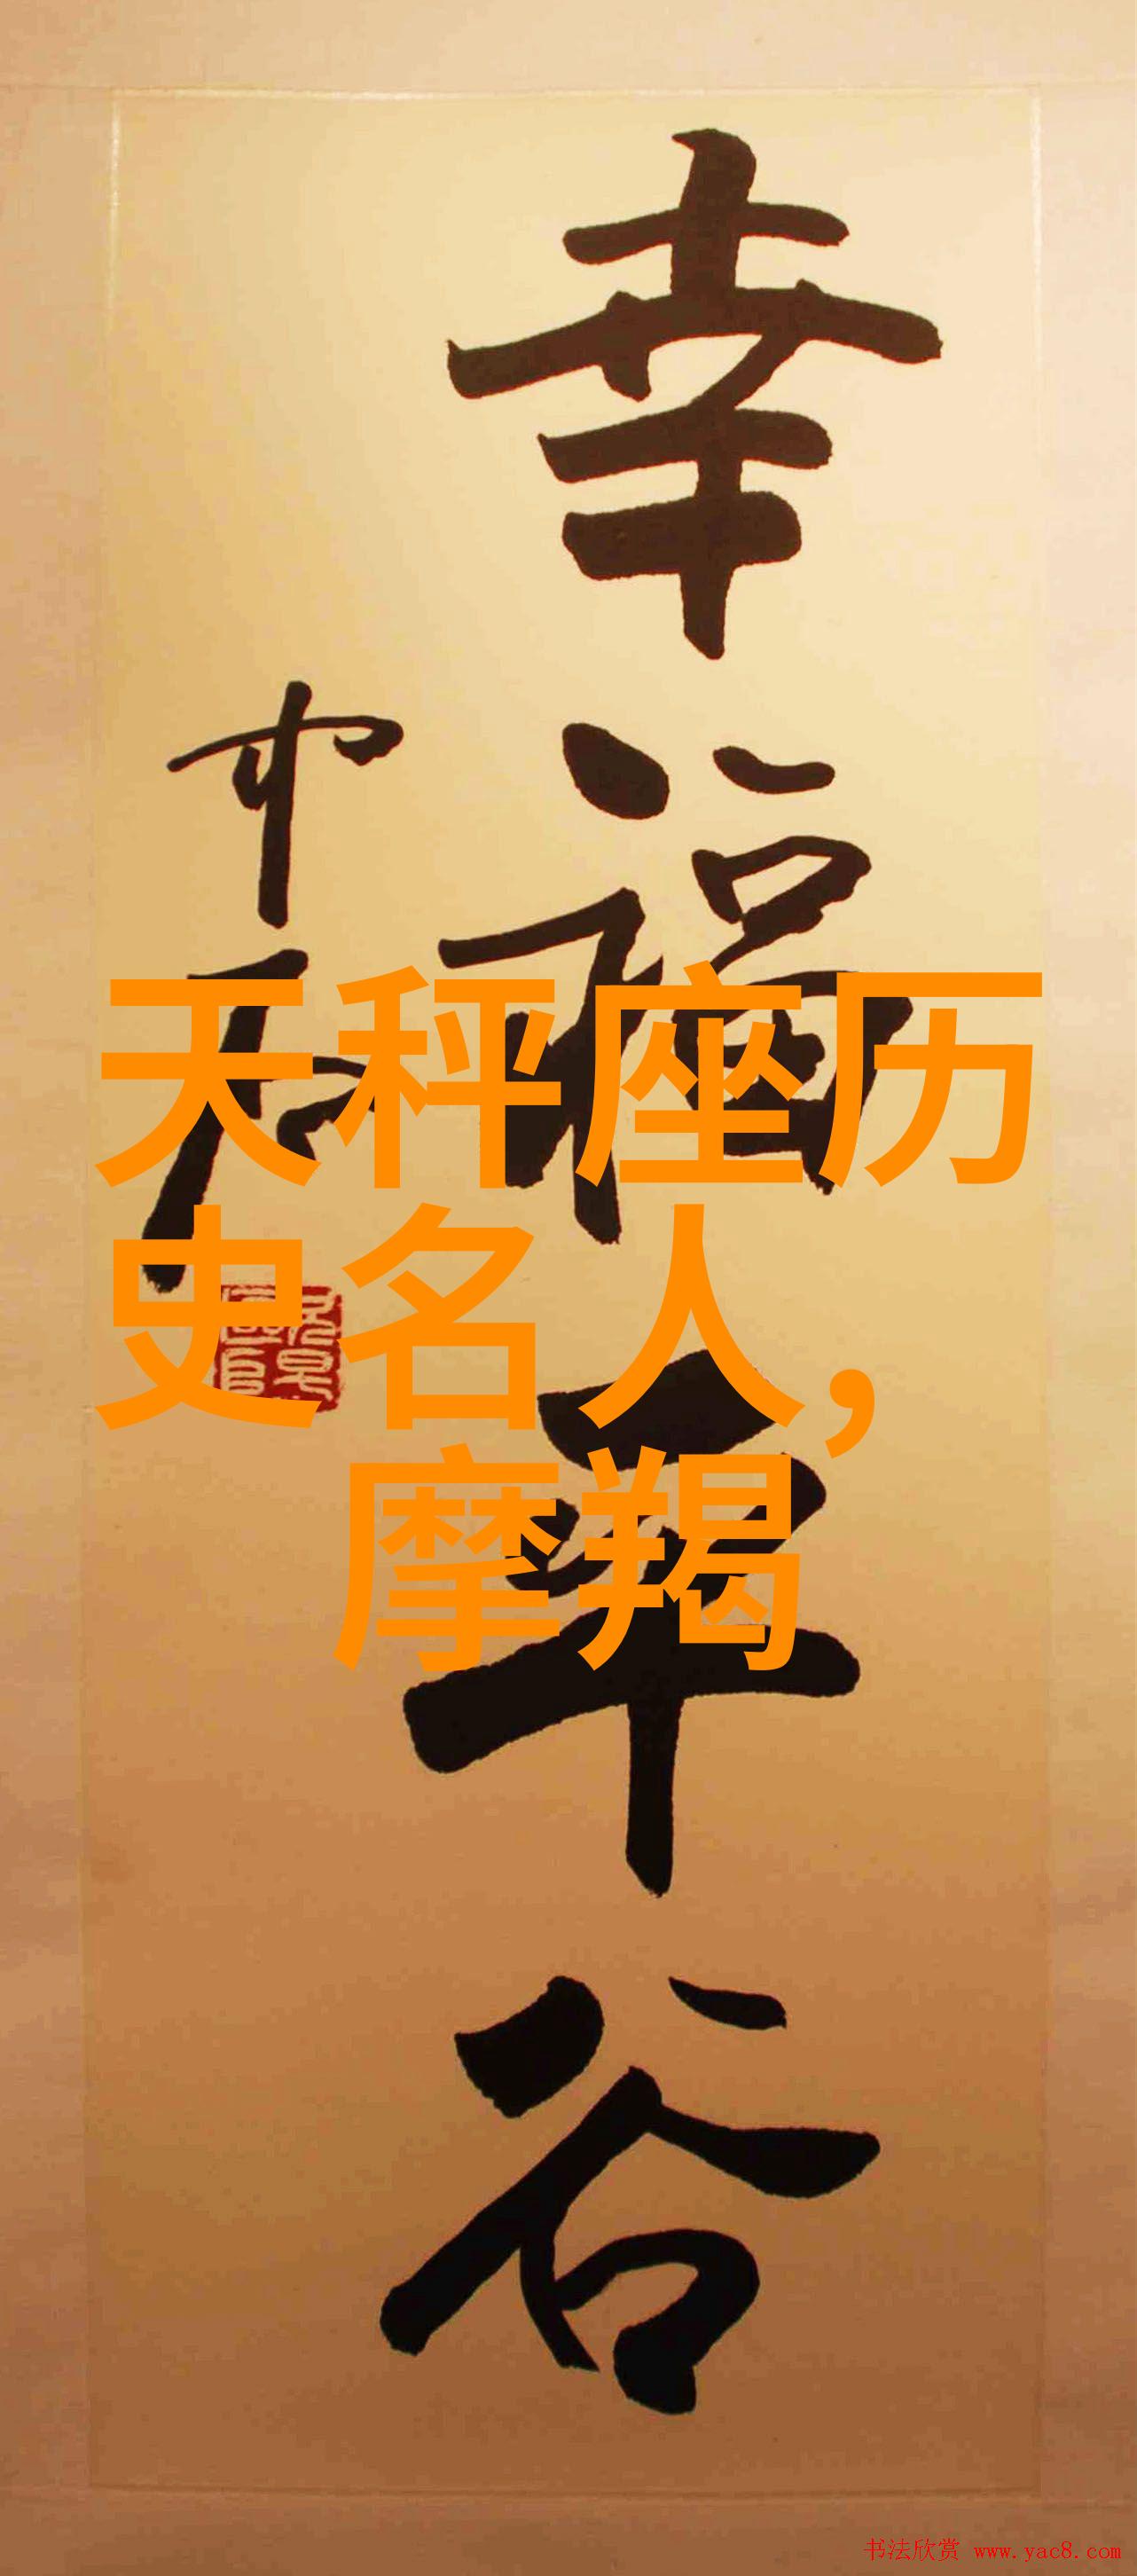 幸福平谷
天秤座历
史名人,
摩羯
书法欣赏 www.yac8.com